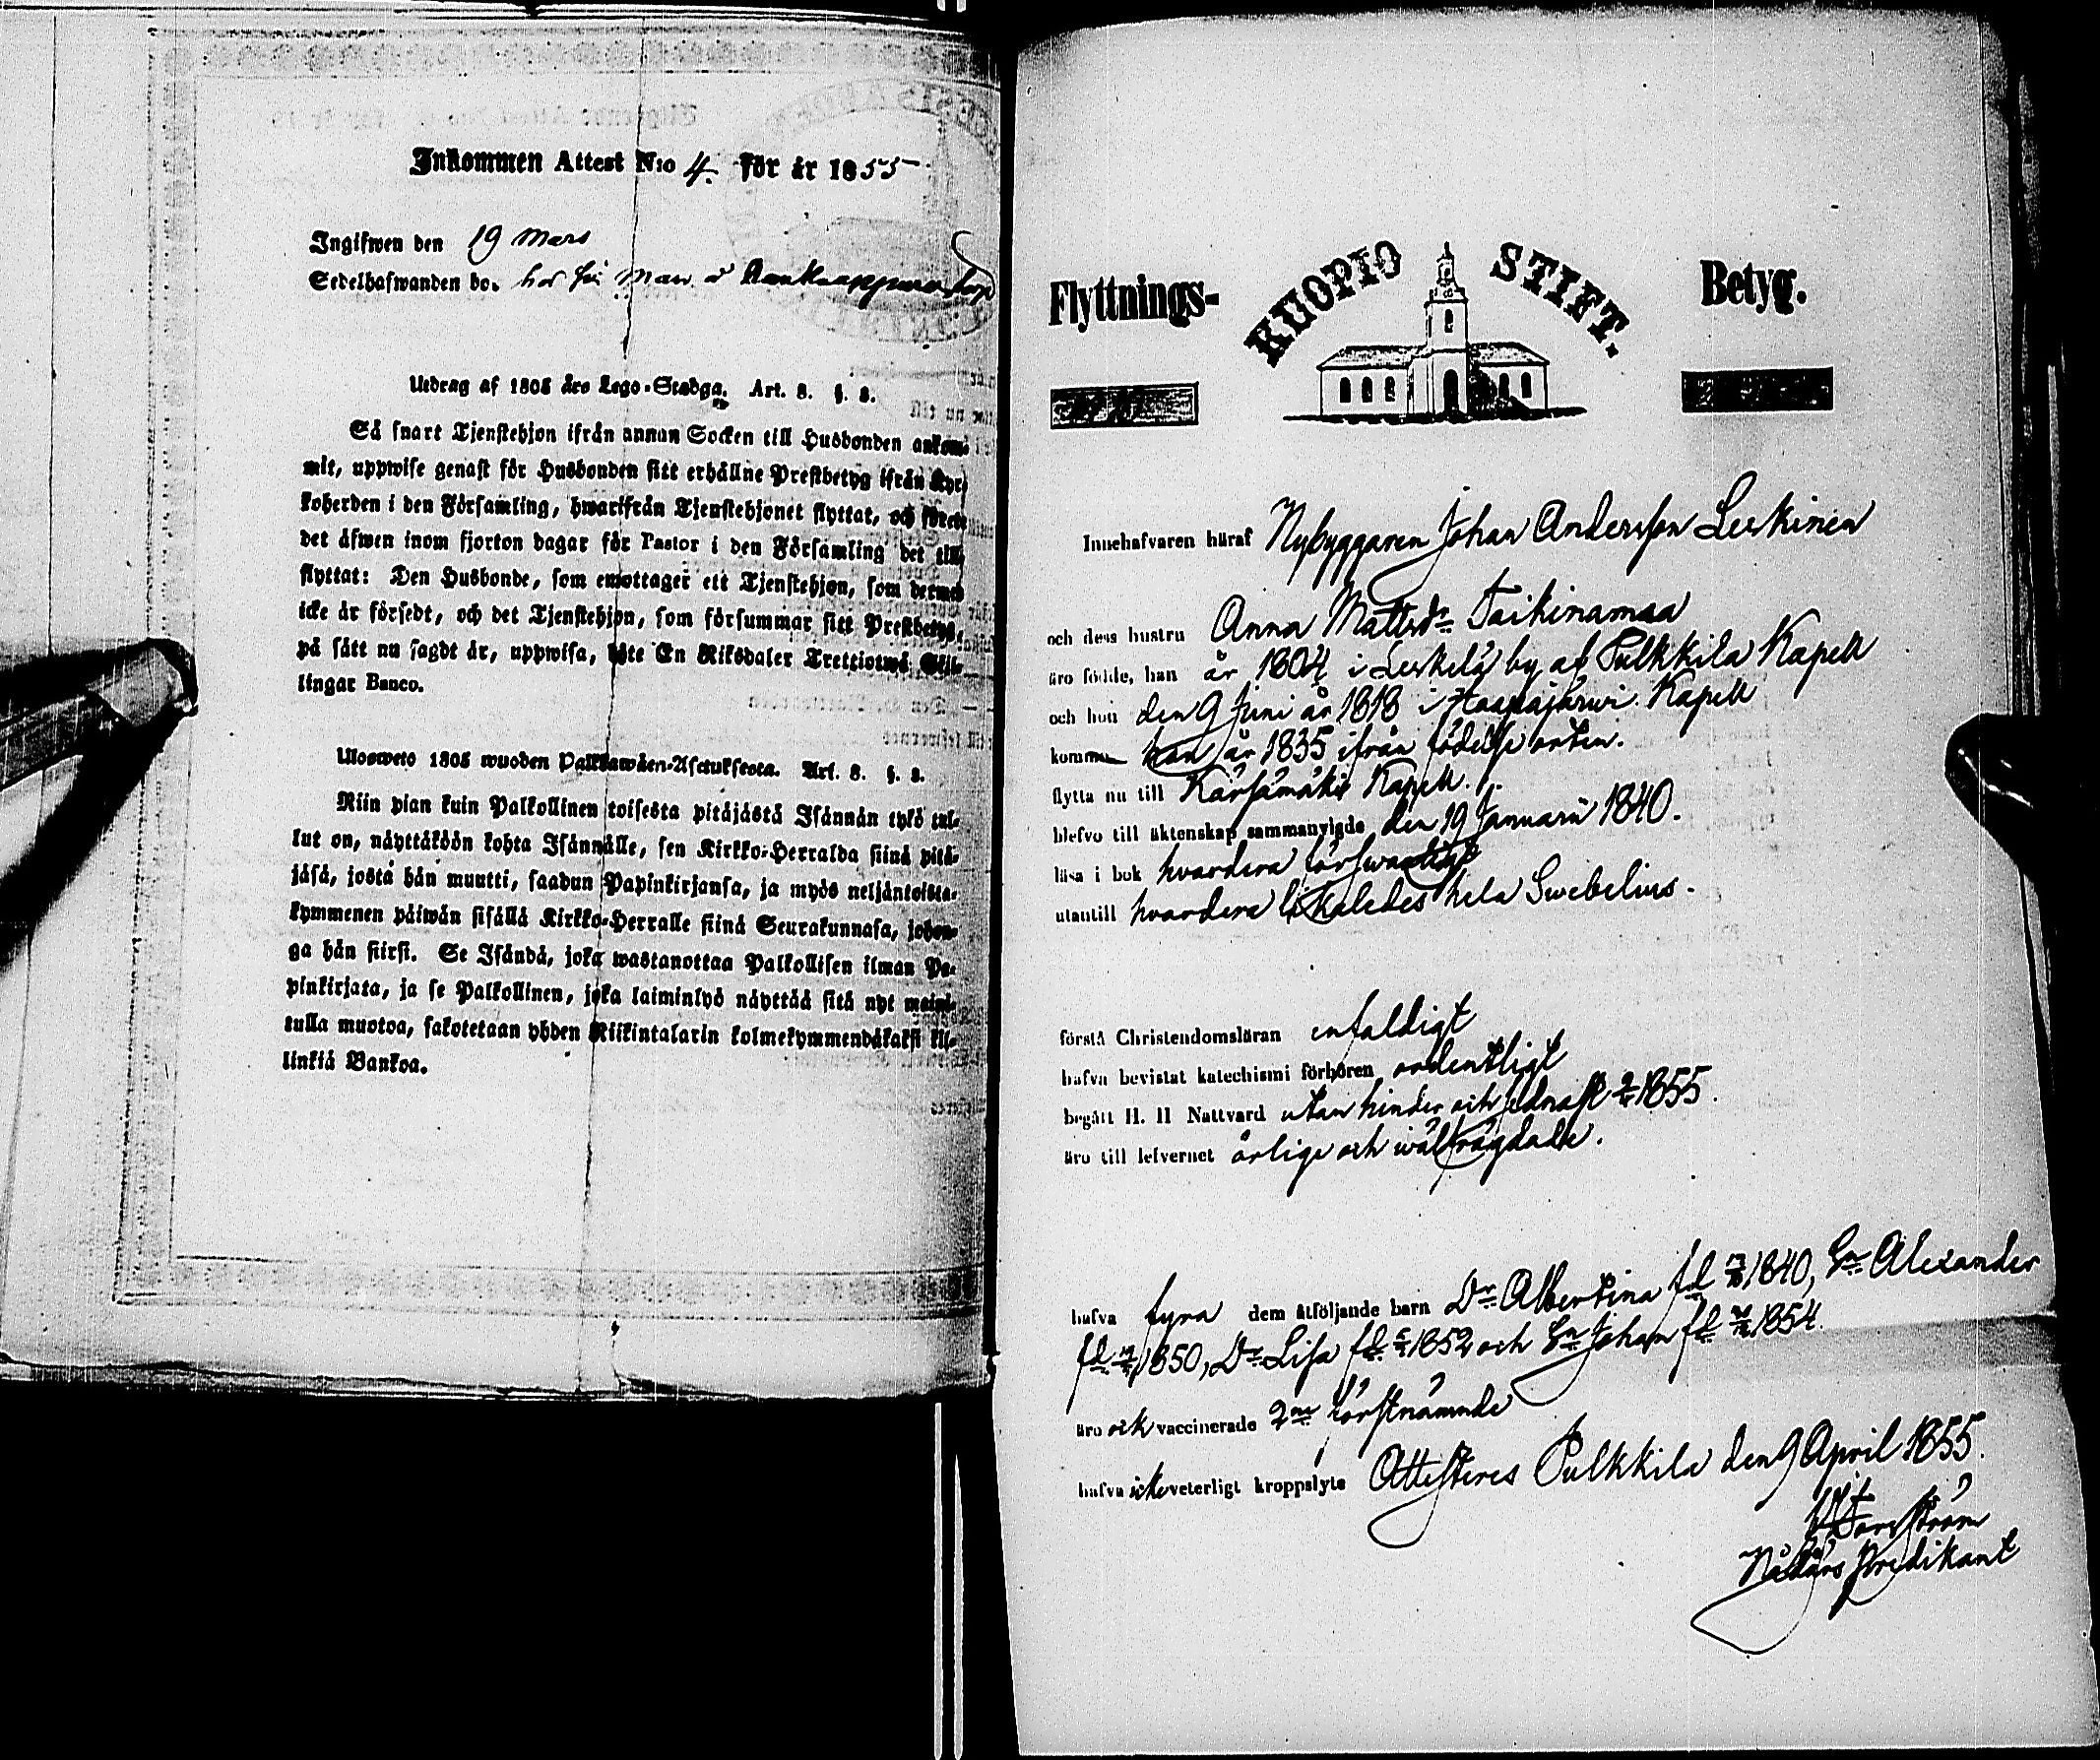 Inkommen Attest N:o 4. för år 1855
Ingifwen den 19 Mars
Sedelhafwanden bo.
Utdrag af 1805 års Lego-Stadga. Art. 8. §. 8.
Så snart Tjenstehjon ifrån annan Socken till Husbonden ankom-
mit, uppwise genast för Husbonden sitt erhållne Prestbetyg ifrån Kyr-
koherden i den Församling, hwarifrån Tjenstehjonet flyttat, och förete
det äfwen inom fjorton dagar för Pastor i den Församling det till-
flyttat: Den Husbonde, som emottager ett Tjenstehjon, som dermed
icke är försedt, och det Tjenstehjon, som försummar sitt Prestbetyg,
på sätt nu sagdt är, uppwisa, böte En Riksdaler Trettiotwå Skil-
lingar Banco.
Ulosweto 1805 wuoden Palkkawäen-Asetuksesta. Art. 8. §. 8.
Niin pian kuin Palkollinen toisesta pitäjästä Isännän tykö tul-
lut on, näyttäköön kohta Isännälle, sen Kirkko-Herralda siinä pitä-
jäsä, josta hän muutti, saadun Papinkirjansa, ja myös neljäntoista-
kymmenen päiwän sisällä Kirkko-Herralle siinä Seurakunnasa, johon-
ga hän siirsi. Se Isändä, joka wastanottaa Palkollisen ilman Pa-
pinkirjata, ja se Palkollinen, joka laiminlyö näyttää sitä nyt maini-
tulla muotoa, sakotetaan yhden Riikintalarin kolmekymmendäkaksi kil-
linkiä Bankoa.
Flyttnings- KUOPIO STIFT. Betyg.
Innehafvaren häraf Nybyggaren Johan Andersson Leskinen
och dess hustru Anna Mattsdr Taikinamaa
äro födde, han år 1804 i Leskelä by af Pulkkila Kapell
och hon den 9 Juni år 1818 i Haapajärwi Kapell
komme han år 1835 ifrån födelse orten.
flytta nu till Kärsämäki Kapell.
blefvo till äktenskap sammanvigde den 19 Januarii 1840.
läsa i bok hvardera försvarligt
utantill hvardera likaledes hela Swebelius.
förstå Christendomsläran enfaldigt
hafva bevistat katechismi förhören ordentligt
begått H. H Nattvard utan hinder och sednast 1855.
äro till lefvernet ärlige och wälfrägdade.
hafva fyra dem åtföljande barn Dr Albertina fd 1840, Sn Alexander
fd 1850, Dr Lisa fd 1852 och Sn Johan fd 1854.
äro och vaccinerade 2ne förstnämnde
hafva icke veterligt kroppslyte Attesteres Pulkkila den 9 April 1855.
Nådårs Predikant